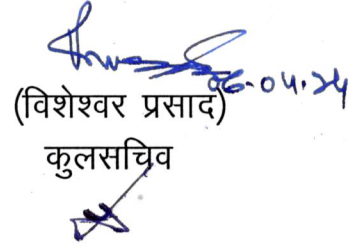 06.04.24
(विशेश्वर प्रसाद)
कुलसचिव